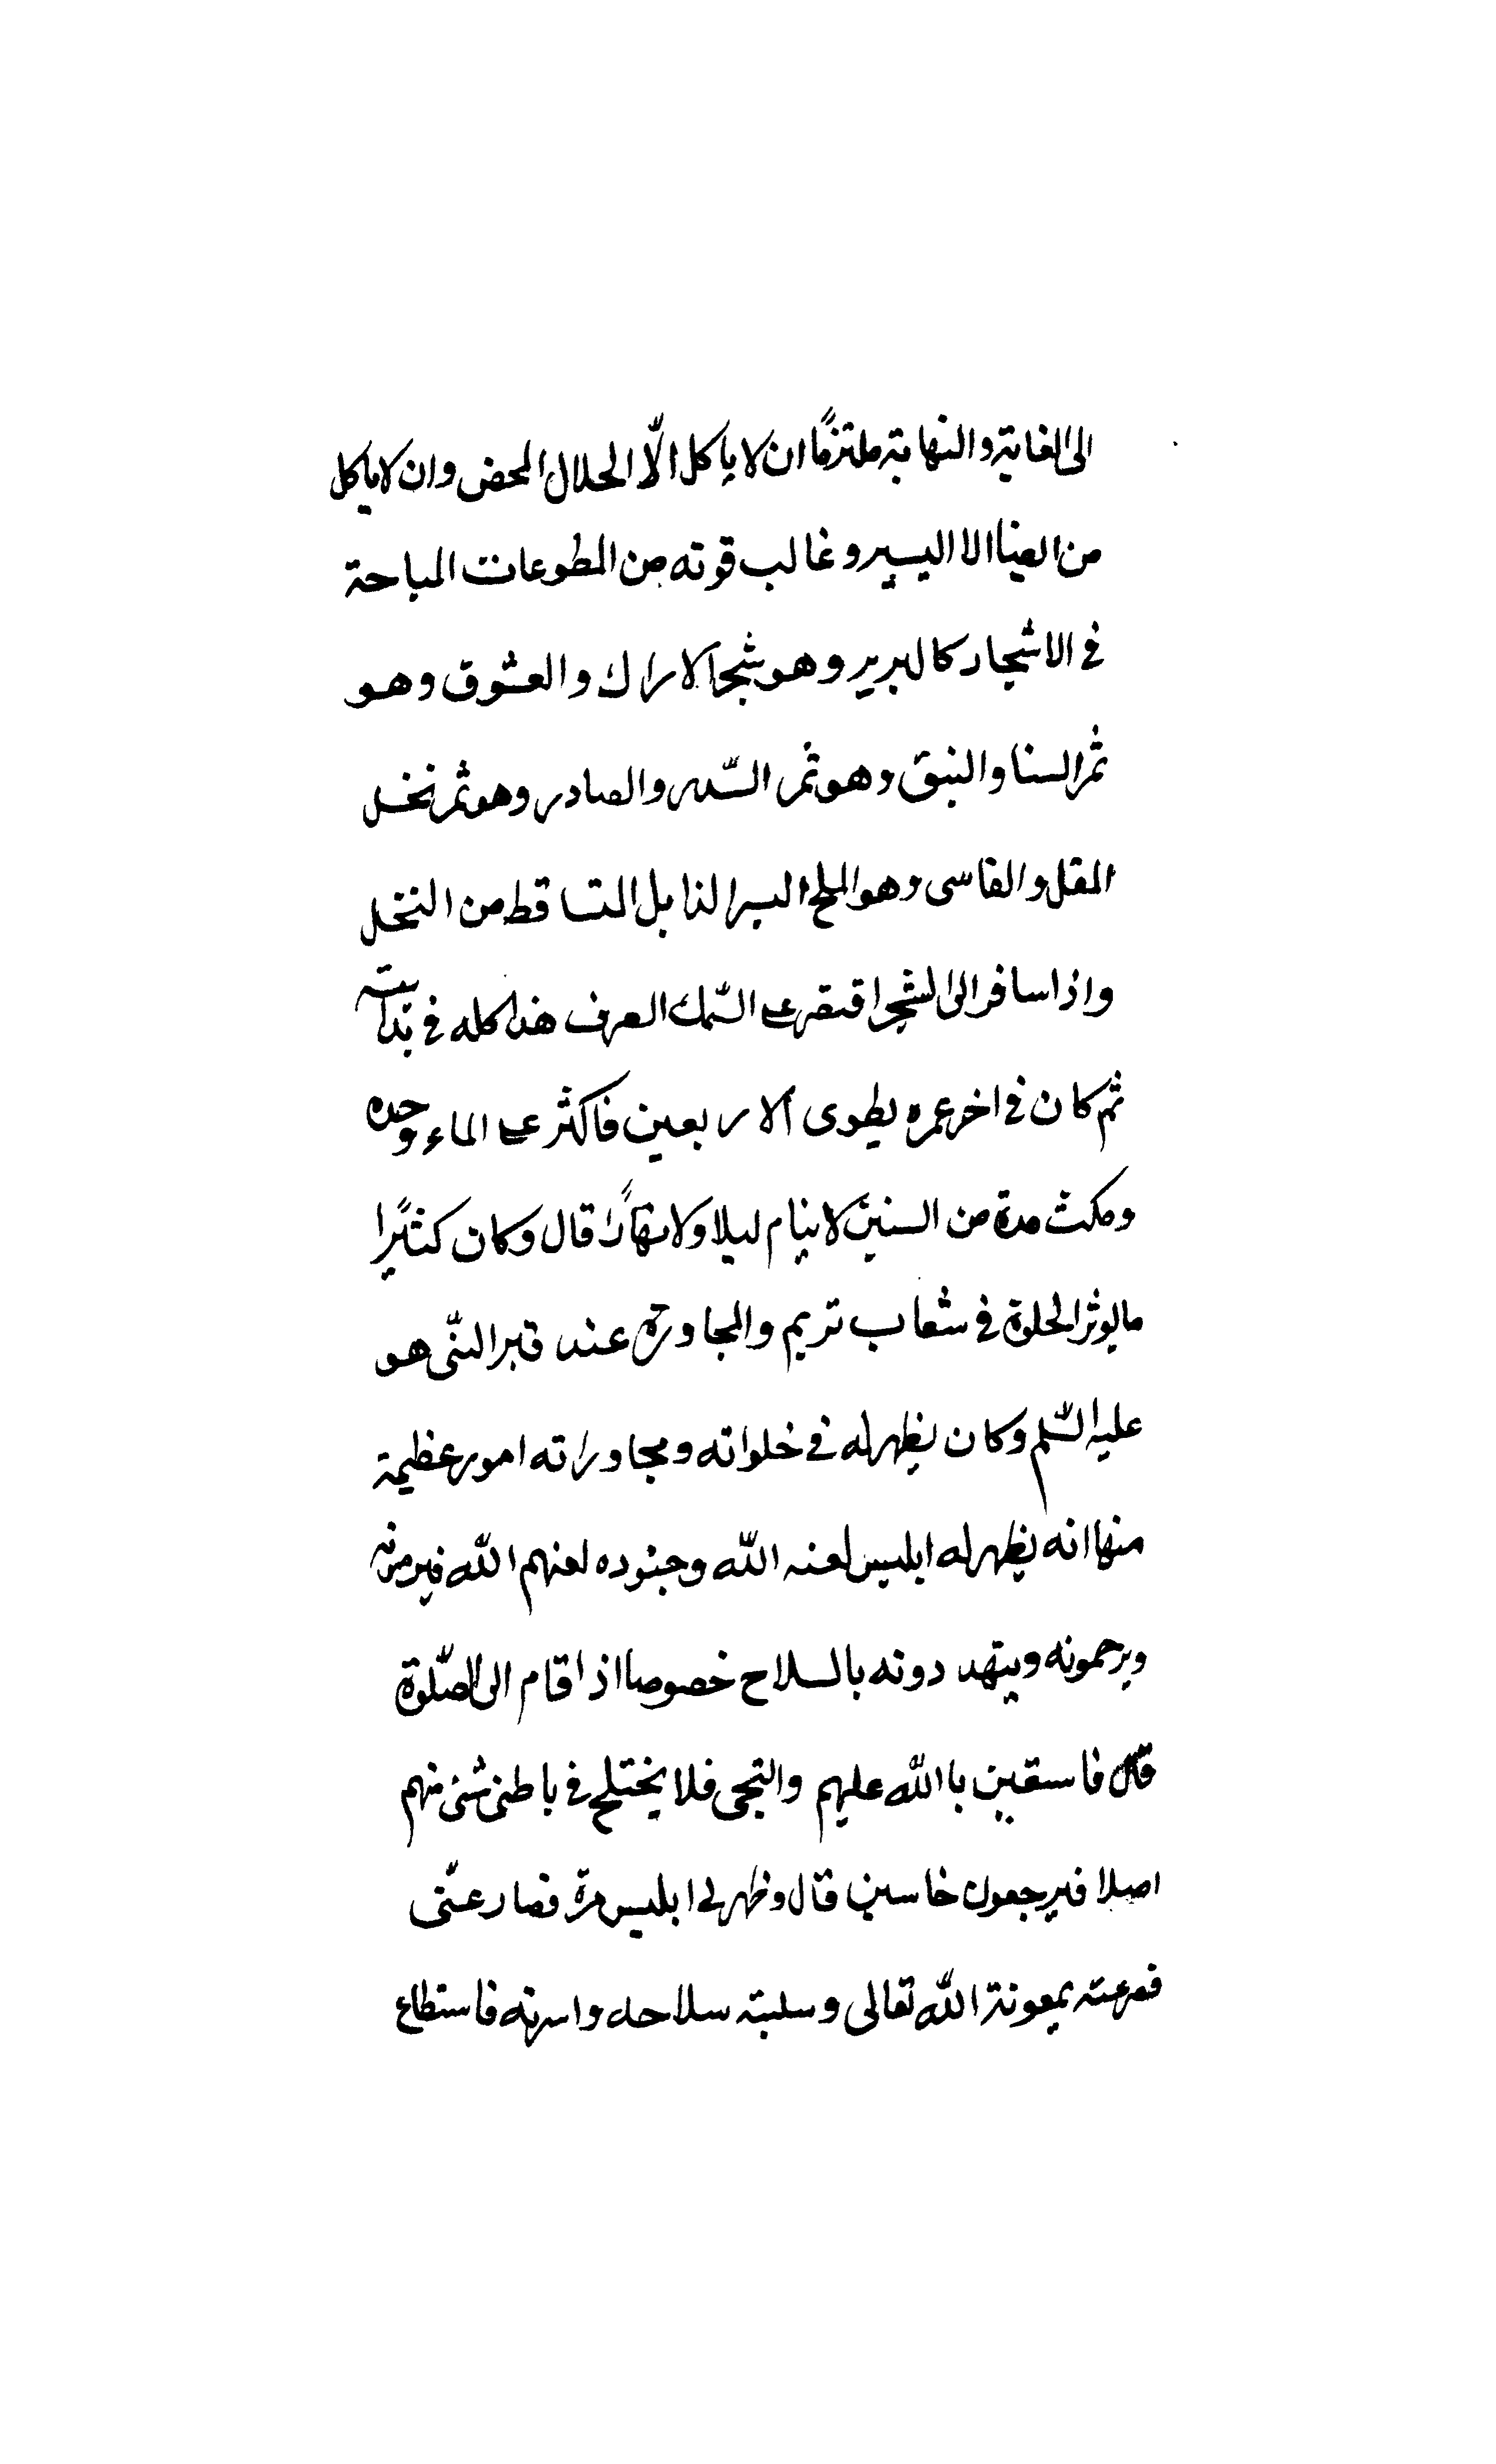 الى الغاية والنهاية ملتزمًا ان لا ياكل الّا الحلال المحض وان لا ياكل
من الضنا الا اليسير وغالب قوته من المطوعات المباحة
في الاشجار كالبرير وهو شجر الاراك والعشوق وهو
ثمر السنا والنبق وهو ثمر السّدر والصادر وهو ثمر نخل
المقل والقاسى وهو البلح البسر الذابل التساقط من النخل
واذا سافر الى الشجر اقتصر على السّمك العرف هذا كله في بدايته
ثم كان في اخر عمره يطوى الاربعين فاكثر على الماء وحده
ومكث مدة من السنين لا ينام ليلا ولا نهارًا قال وكان كثيرًا
ما يوثر الخلوة في شعاب تريم والمجاورة عند قبر النبّى هو
عليه السّلم وكان يظهر له في خلواته ومجاوراته امور عظيمة
منها انه يظهر له ابليس لعنه الله وجنوده لعنهم الله فيرمونه
ويرحمونه ويتهددونه بالسلاح خصوصا اذا قام الى الصّلوة
قال فاستعين با الله عليهم والتجى فلا يختلج في باطنى شئ منهم
اصلا فيرجعون خاسين قال وظهر لى ابليس مرّة فصارعنّى
فصرعته بمعونة الله تعالى وسلبته سلاحه واسرته فاستطاع